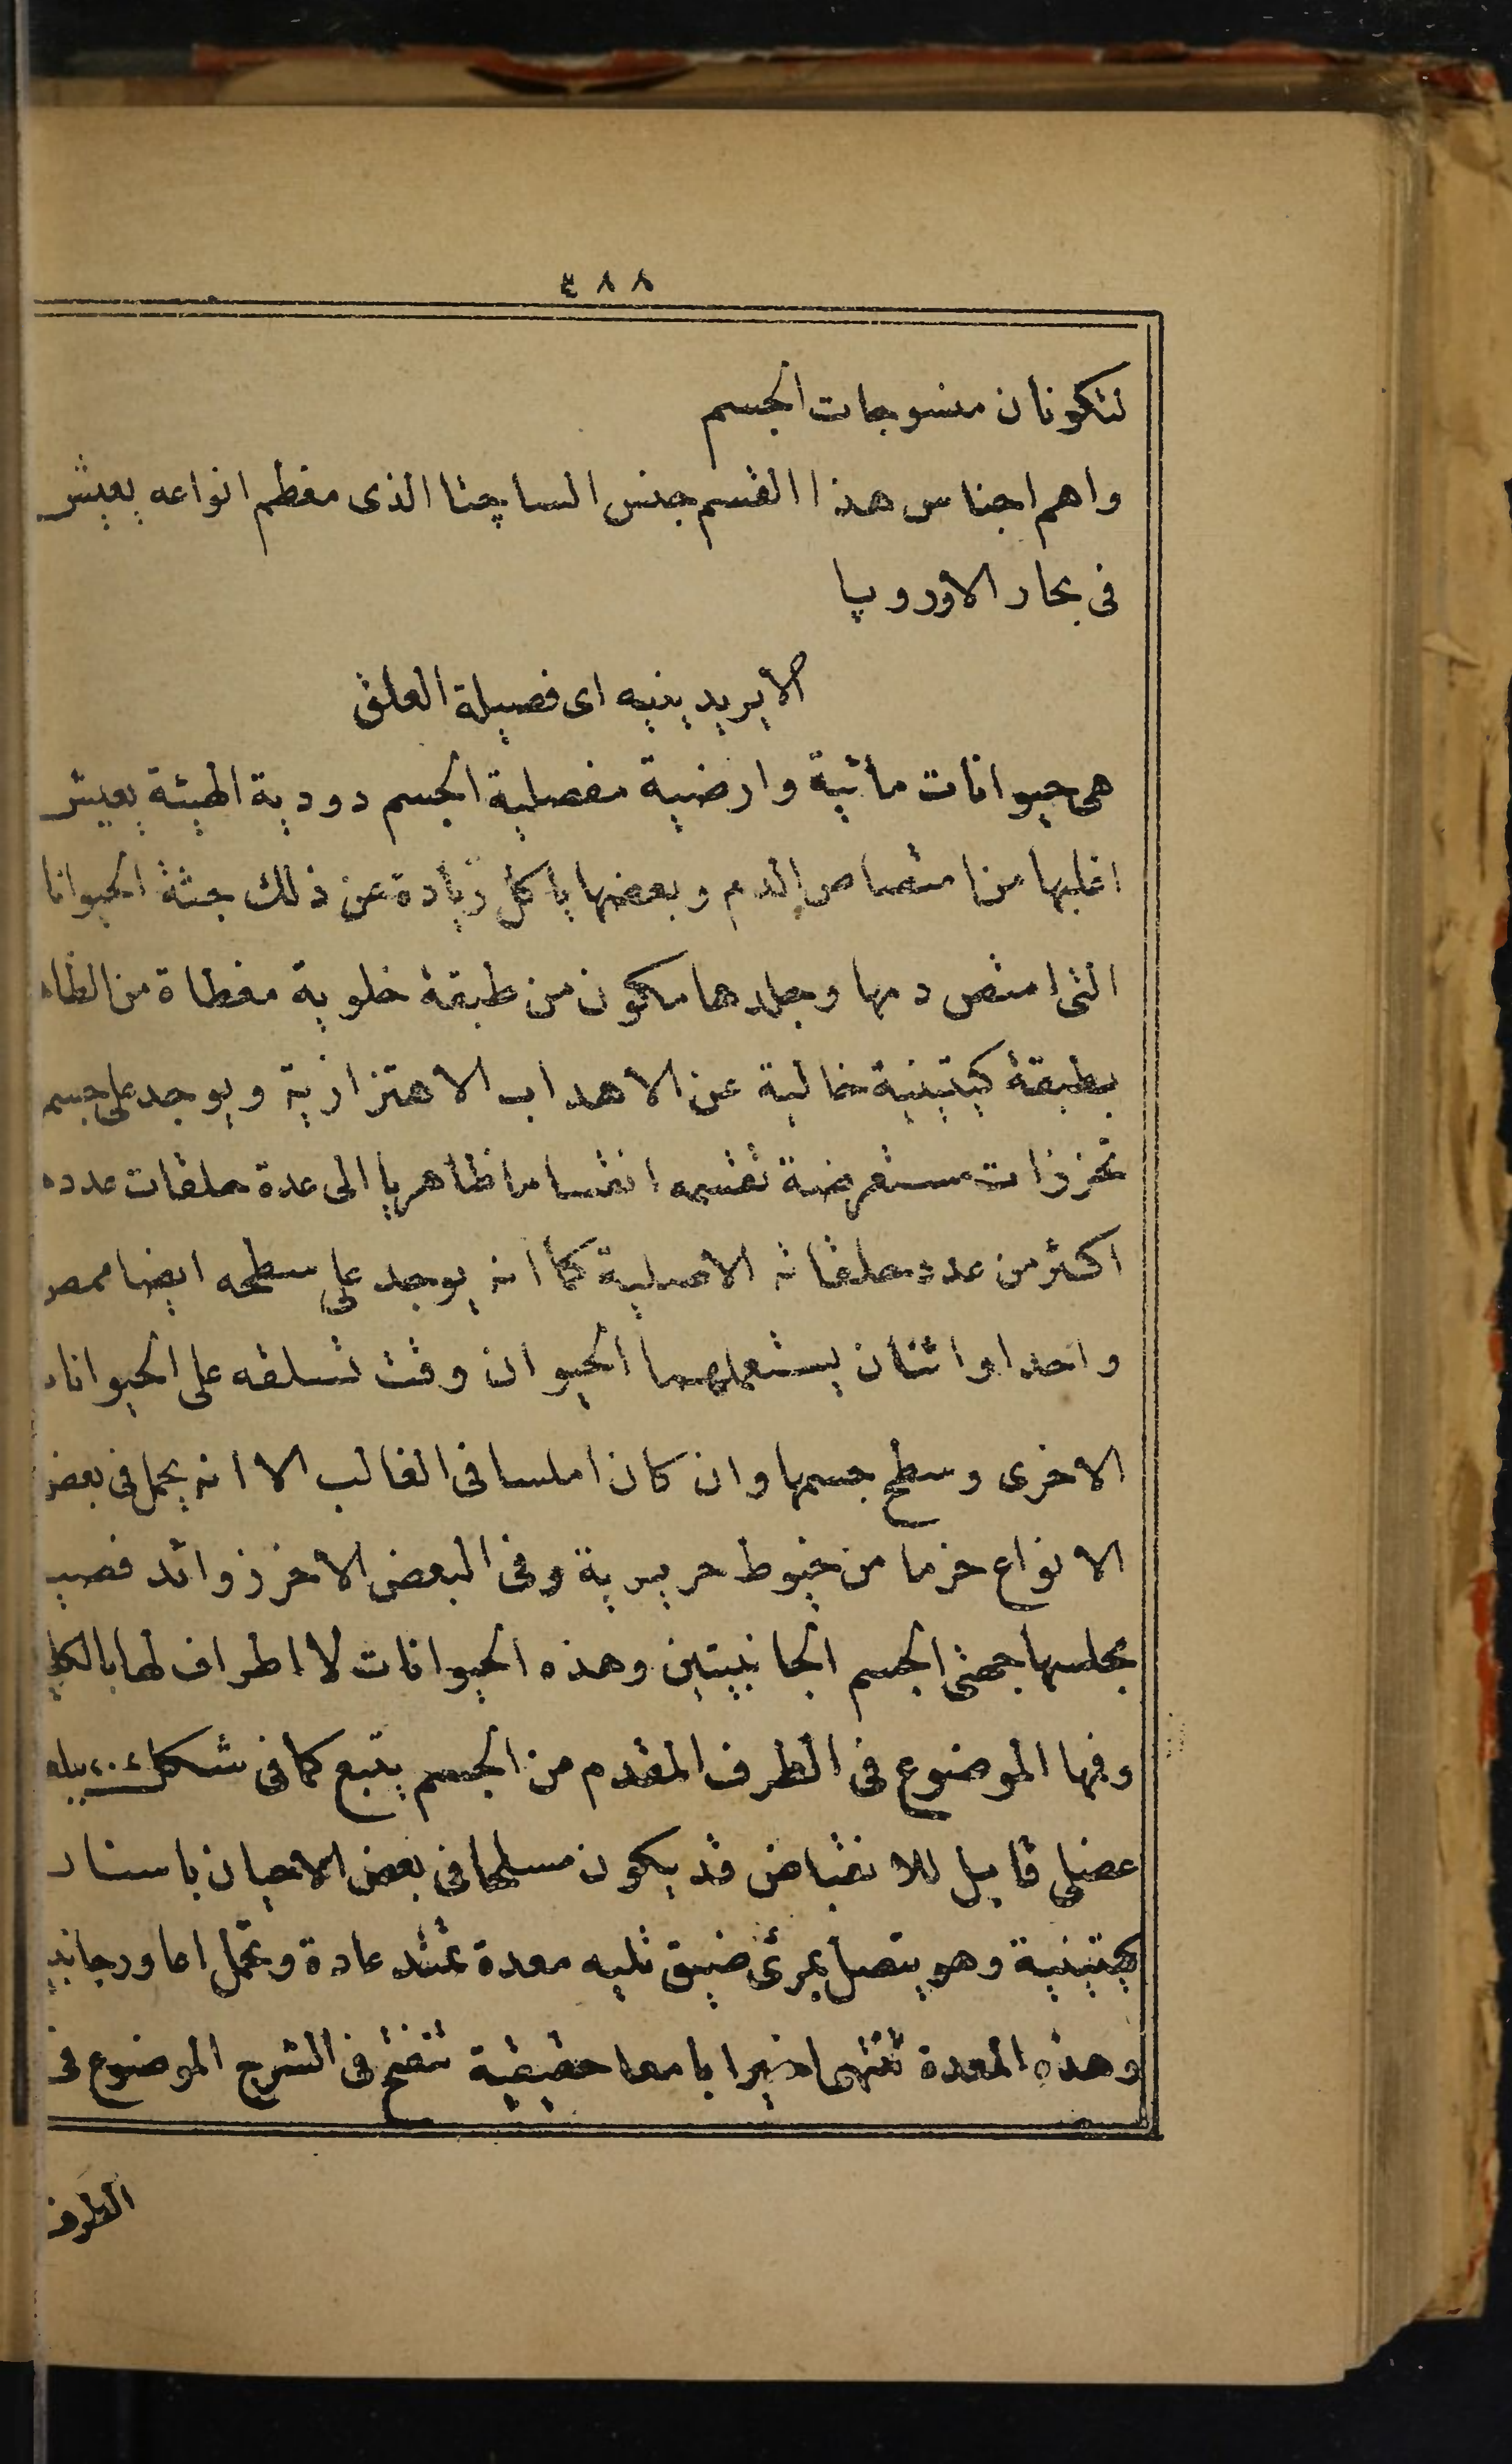 ٤٨٨
لتكونان منسوجات الجسم
واهم اجناس هذا القسم جنس الساچتا الذى معظم انواعه يعيش
فى بحار الأوروپا
الايريدينيه اى فصيلة العلق
هى حيوانات مائية وارضية مفصلية الجسم دودية الهيئة يعيش
اغلبها من امتصاص الدم وبعضها ياكل زيادة عن ذلك جثة الحيوانا
التى امتص دمها وجلدها مكون من طبقة خلوية مغطاة من الظاه
بطبقة كيتينية خالية عن الاهداب الاهتزازية ويوجد على جسم
تحززات مستعرضة تقسمه انقساما ظاهريا الى عدة حلقات عدده
اكثر من عدد حلقاته الاصلية كما انه يوجد على سطحه ايضا ممص
واحد او اثنان يستعملهما الحيوان وقت تسلقه على الحيوانات
الاخرى وسطح جسمها وان كان املسا فى الغالب الا انه يحمل فى بعض
الانواع حزما من خيوط حريرية وفى البعض الاخر زوائد قصب
مجلسها جهتى الجسم الجانبيتين وهذه الحيوانات لا اطراف لها بالكلي
وفمها الموضوع فى الطرف المقدم من الجسم يتبع كما فى شكل
عضلى قابل للانقباض قد يكون مسلحا فى بعض الاحيان باسنان
كيتينية وهو يتصل بمرئ ضيق تليه معدة تمتد عادة وتحمل اعاورجانبي
وهذه المعدة تنتهى اخيرا بامعا حقيقية تنفتح فى الشرج الموضوع فى
الطرف